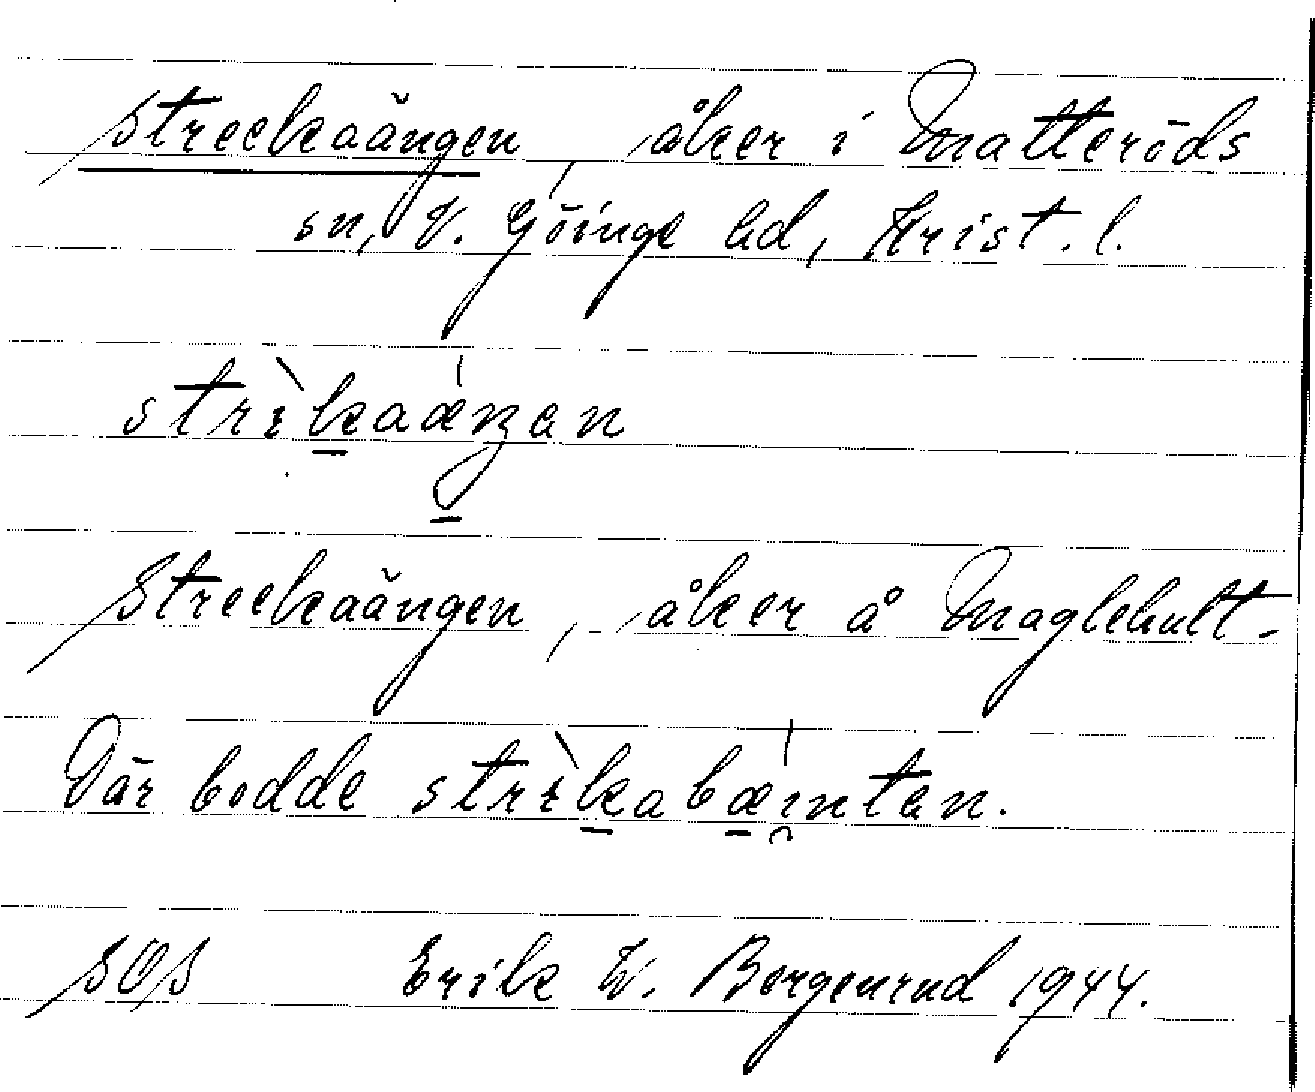 Streckaängen, åker i Matteröds
sn, V. Göinge hd, Krist. l.
strìkaæŋən
Streckaängen, åker å Maglehult.
Där bodde strìkabæintən.
SOS Erik W. Borgenrud 1944.